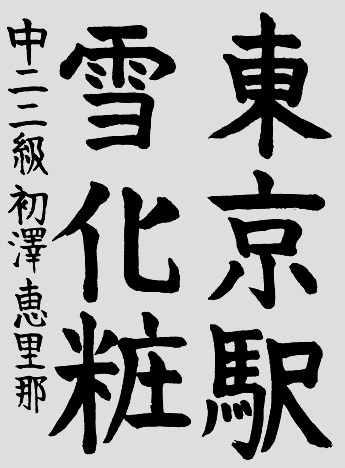 東京駅
雪化粧
中二二級 初澤恵里那